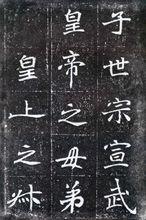 子世宗宣武
皇帝之母弟
皇上之叔